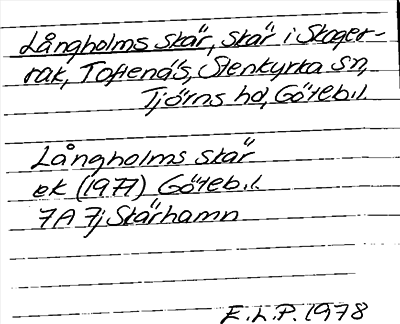 Långholms skär, skär i Skager-
rak, Toftenäs, Stenkyrka sn,
Tjörns hd, Göteb.l.
Långholms skär
ek (1977) Göteb.l.
7A 7j Skärhamn
E.L.P. 1978